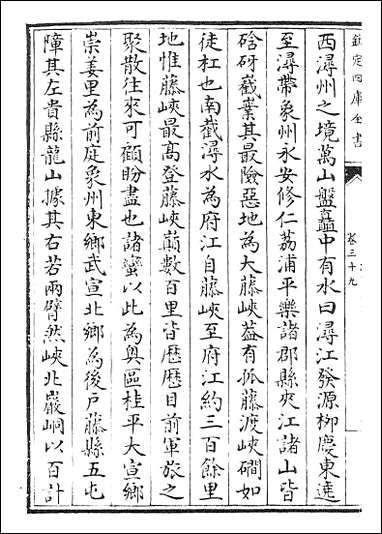 欽定四庫全書
卷三十九
西潯州之境萬山盤矗中有水曰潯江發源柳慶東遶
至潯帶象州永安修仁荔浦平樂諸郡縣夾江諸山皆
硌砑嶻嶪其最險惡地為大藤峽葢有孤藤渡峽磵如
徒杠也南截潯水為府江自藤峽至府江約三百餘里
地惟藤峽最高登藤峽巔數百里皆歴歴目前軍旅之
聚散往來可顧盼盡也諸蠻以此為奥區桂平大宣鄉
崇姜里為前庭象州東鄉武宣北鄉為後戸藤縣五屯
障其左貴縣龍山據其右若兩臂然峽北巖峒以百計